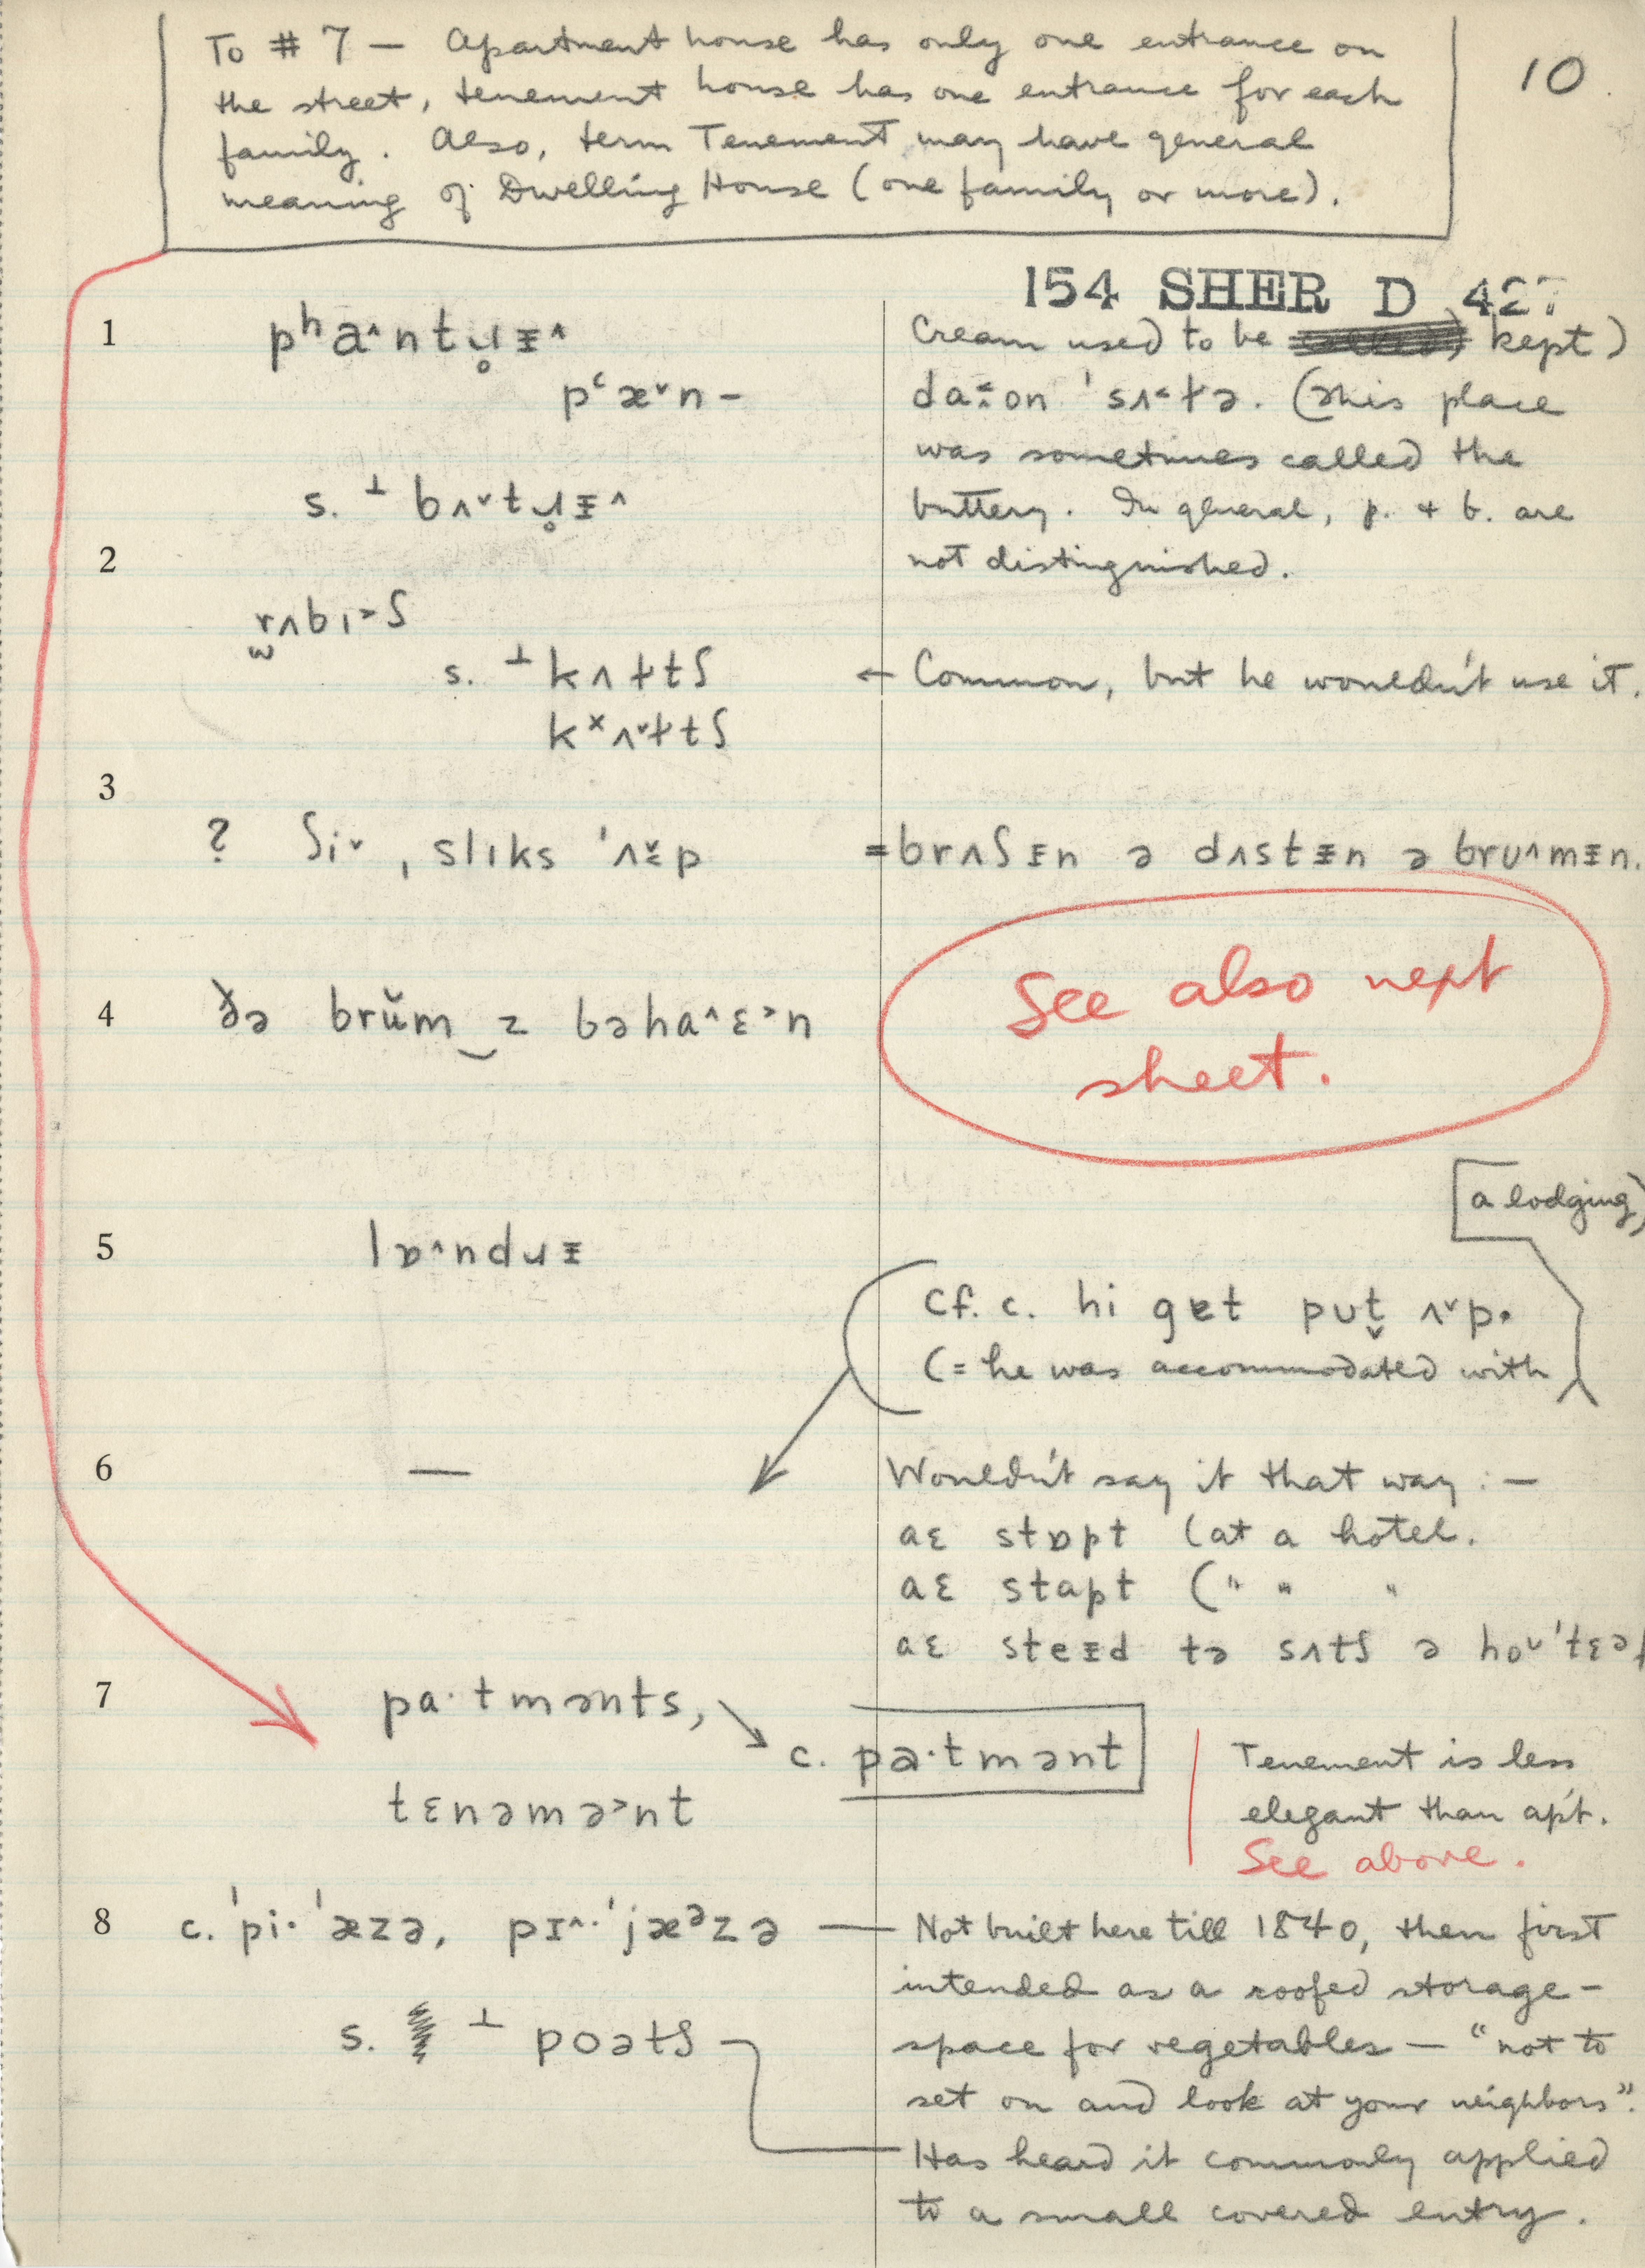 To # 7 — Apartment house has only one entrance on
the street, tenement house has one entrance for each
family. Also, term Tenement may have general
meaning of Dwelling House (one family or more).
10
154 SHER D 427
1 pʰa^ntɹ̥ᵻ^ Cream used to be kept)
pʿæˇn – daon ˈsʌ˂ɫə. (This place
was sometimes called the
s. ⊥ bʌˇtɹ̥ᵻ^ buttery. In general, p. + b. are
2 not distinguished.
rʌbɪ˃ʃ
s. ⊥ kʌɫtʃ ← Common, but he wouldn't use it.
kˣʌˇɫtʃ
3
? ʃiˇ, slɪks ˈʌp = brʌʃᵻn ə dʌstᵻn ə brʊ^mᵻn.
4 ðə brŭm‿z bəha^ɛ˃n See also next
sheet.
[a lodging)
5 lɒ^ndɹᵻ
Cf. c. hi get pʊt̬ ʌˇp.
(= he was accommodated with
6 — Wouldn't say it that way : —
aɛ stɒpt (at a hotel.
aɛ stapt (" " "
aɛ steᵻd tə sʌtʃ ə hoʊˈtɛəɫ
7 pa·tmənts,
c. pa·tmənt Tenement is less
tɛnəmə˃nt elegant than ap't.
See above.
8 c. ˈpi·ˈæzə, pɪ^·ˈjæᵊzə — Not built here till 1840, then first
intended as a roofed storage-
s. ⊥ poətʃ space for vegetables — "not to
set on and look at your neighbors".
Has heard it commonly applied
to a small covered entry.